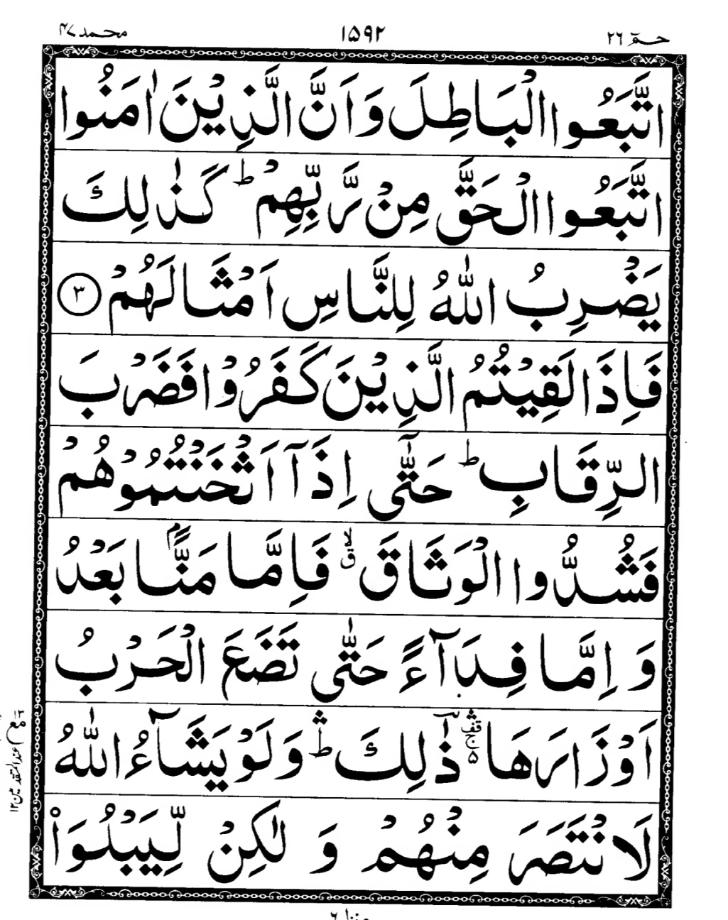 حٰمٓ ٢٦ ١٥٩٢ محمد ٤٧
اتَّبَعُوا الْبَاطِلَ وَاَنَّ الَّذِيْنَ اٰمَنُوا
اتَّبَعُوا الْحَقَّ مِنْ رَّبِّهِمْ ؕ كَذٰلِكَ
يَضْرِبُ اللّٰهُ لِلنَّاسِ اَمْثَالَهُمْ ﴿٣﴾
فَاِذَا لَقِيْتُمُ الَّذِيْنَ كَفَرُوْا فَضَرْبَ
الرِّقَابِ ؕ حَتّٰۤى اِذَاۤ اَثْخَنْتُمُوْهُمْ
فَشُدُّوا الْوَثَاقَ ۙ فَاِمَّا مَنًّۢا بَعْدُ
وَ اِمَّا فِدَآءً حَتّٰى تَضَعَ الْحَرْبُ
اَوْزَارَهَا ذٰؔلِكَ ؕ وَلَوْ يَشَآءُ اللّٰهُ
لَانْتَصَرَ مِنْهُمْ وَ لٰكِنْ لِّيَبْلُوَا۟